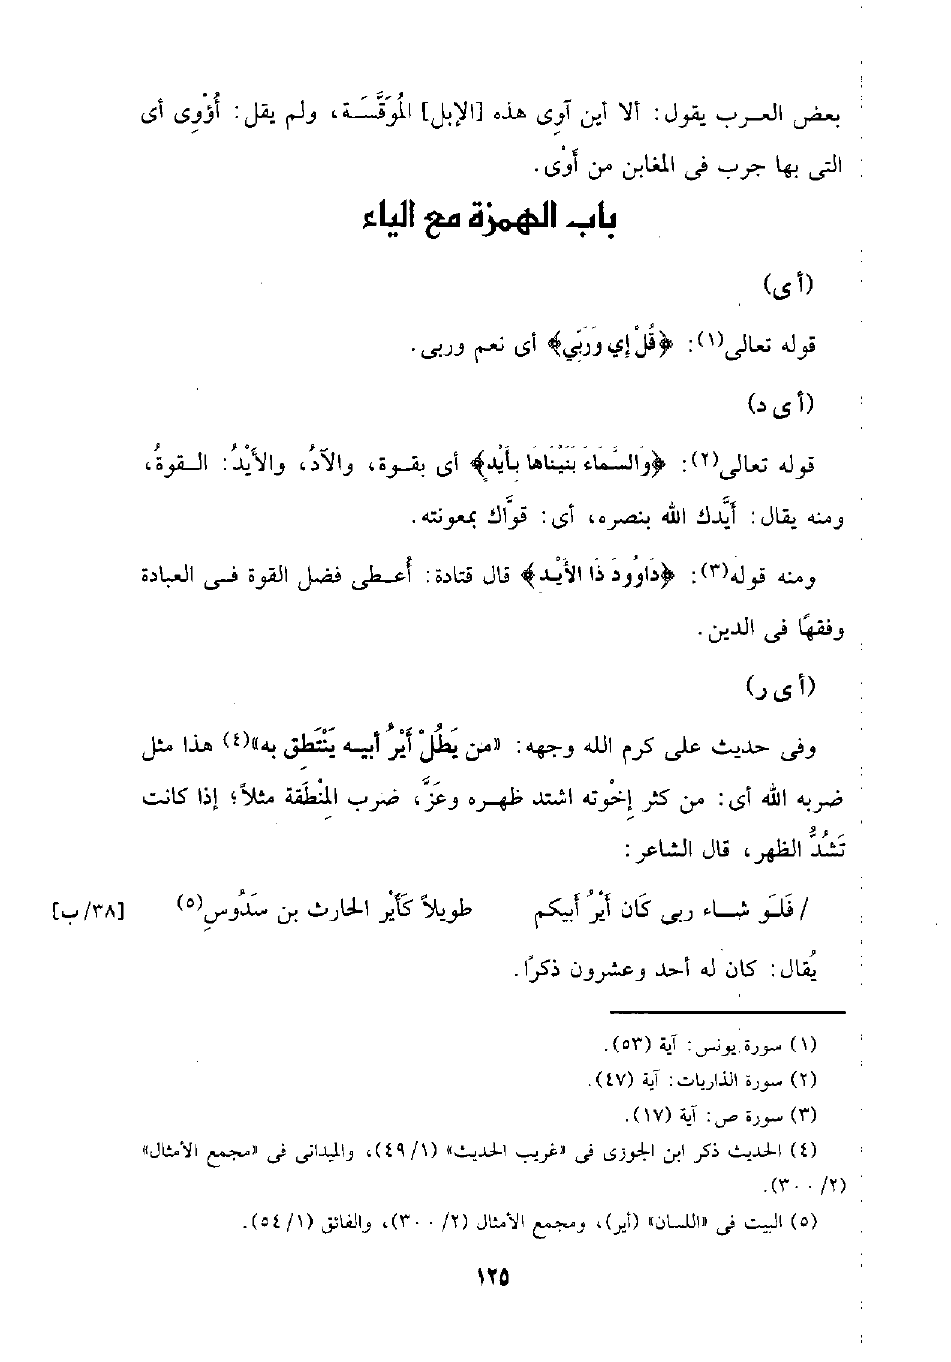 بعض العرب يقول: ألا أين آوِى هذه [الإبل] المُوَقَّسَة، ولم يقل: أُؤْوِى أى
التى بها جرب فى المغابن من أَوْى.
باب الهمزة مع الياء
(أ ى)
قوله تعالى(١): ﴿قُلْ إِي وَرَبِّي﴾ أى نعم وربى.
(أ ى د)
قوله تعالى(٢): ﴿وَالسَّمَاءَ بَنَيْنَاهَا بِأَيْدٍ﴾ أى بقوة، والآدُ، والأَيْدُ: القوةُ،
ومنه يقال: أَيَّدك الله بنصره، أى: قوَّاك بمعونته.
ومنه قوله(٣): ﴿دَاوُودَ ذَا الأَيْدِ﴾ قال قتادة: أُعطى فضل القوة فى العبادة
وفقهًا فى الدين.
(أ ى ر)
وفى حديث على كرم الله وجهه: «من يَطُلْ أَيْرُ أبيه يَنْتَطِق به»(٤) هذا مثل
ضربه الله أى: من كثر إخْوِته اشتد ظهره وعَزَّ، ضرب المِنْطَقة مثلاً؛ إذا كانت
تَشُدُّ الظهر، قال الشاعر:
/ فَلَو شاء ربى كَان أَيْرُ أبيكم طويلاً كَأَيْر الحارث بن سَدُوسِ(٥) [٣٨/ب]
يُقال: كان له أحد وعشرون ذكرًا.
(١) سورة يونس: آية (٥٣).
(٢) سورة الذاريات: آية (٤٧).
(٣) سورة ص: آية (١٧).
(٤) الحديث ذكر ابن الجوزى فى «غريب الحديث» (٤٩/١)، والميدانى فى «مجمع الأمثال»
(٣٠٠/٢).
(٥) البيت فى «اللسان» (أير)، ومجمع الأمثال (٣٠٠/٢)، والفائق (٥٤/١).
١٢٥